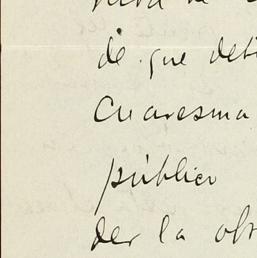 de que deb
Cuaresma
público
der la obr